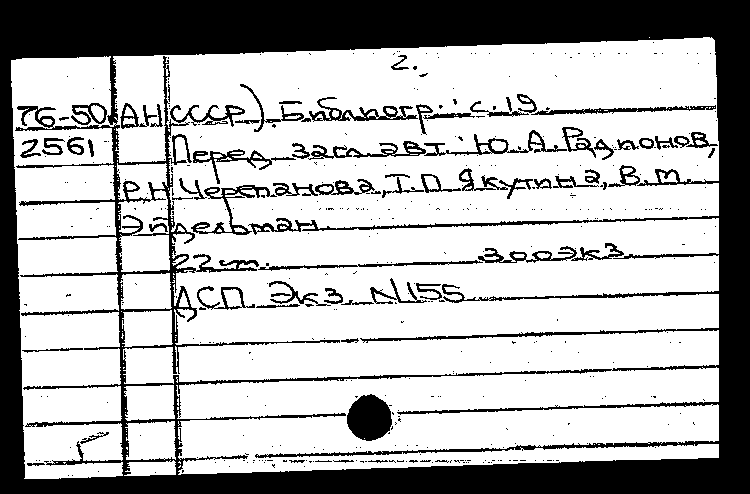 2.
76-50 АН СССР). Библиогр.: с. 19.
2561 Перед загл. авт.: Ю. А. Радионов,
Р. Н. Черепанова, Т. П. Якутина, В. М.
Эйдельман.
22 см. 300 экз.
ДСП. Экз. N 155